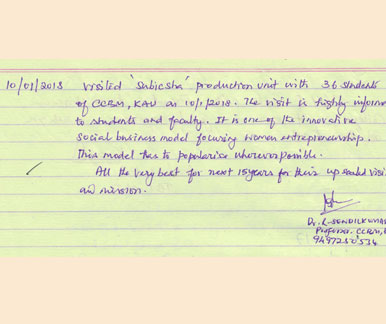 10/01/2018 Visited 'Subicsha' production unit with 36 students
of CCBM, KAU on 10/1/2018. The visit is highly inform
to students and faculty. It is one of the innovative
social business model focusing women entrepreneurship.
This model has to popularise wherever possible.
All the very best for next 15 years for their up scaled visi
and mission.
Dr. R. SENDILKUMA
Professor, CCBM,
9497250534